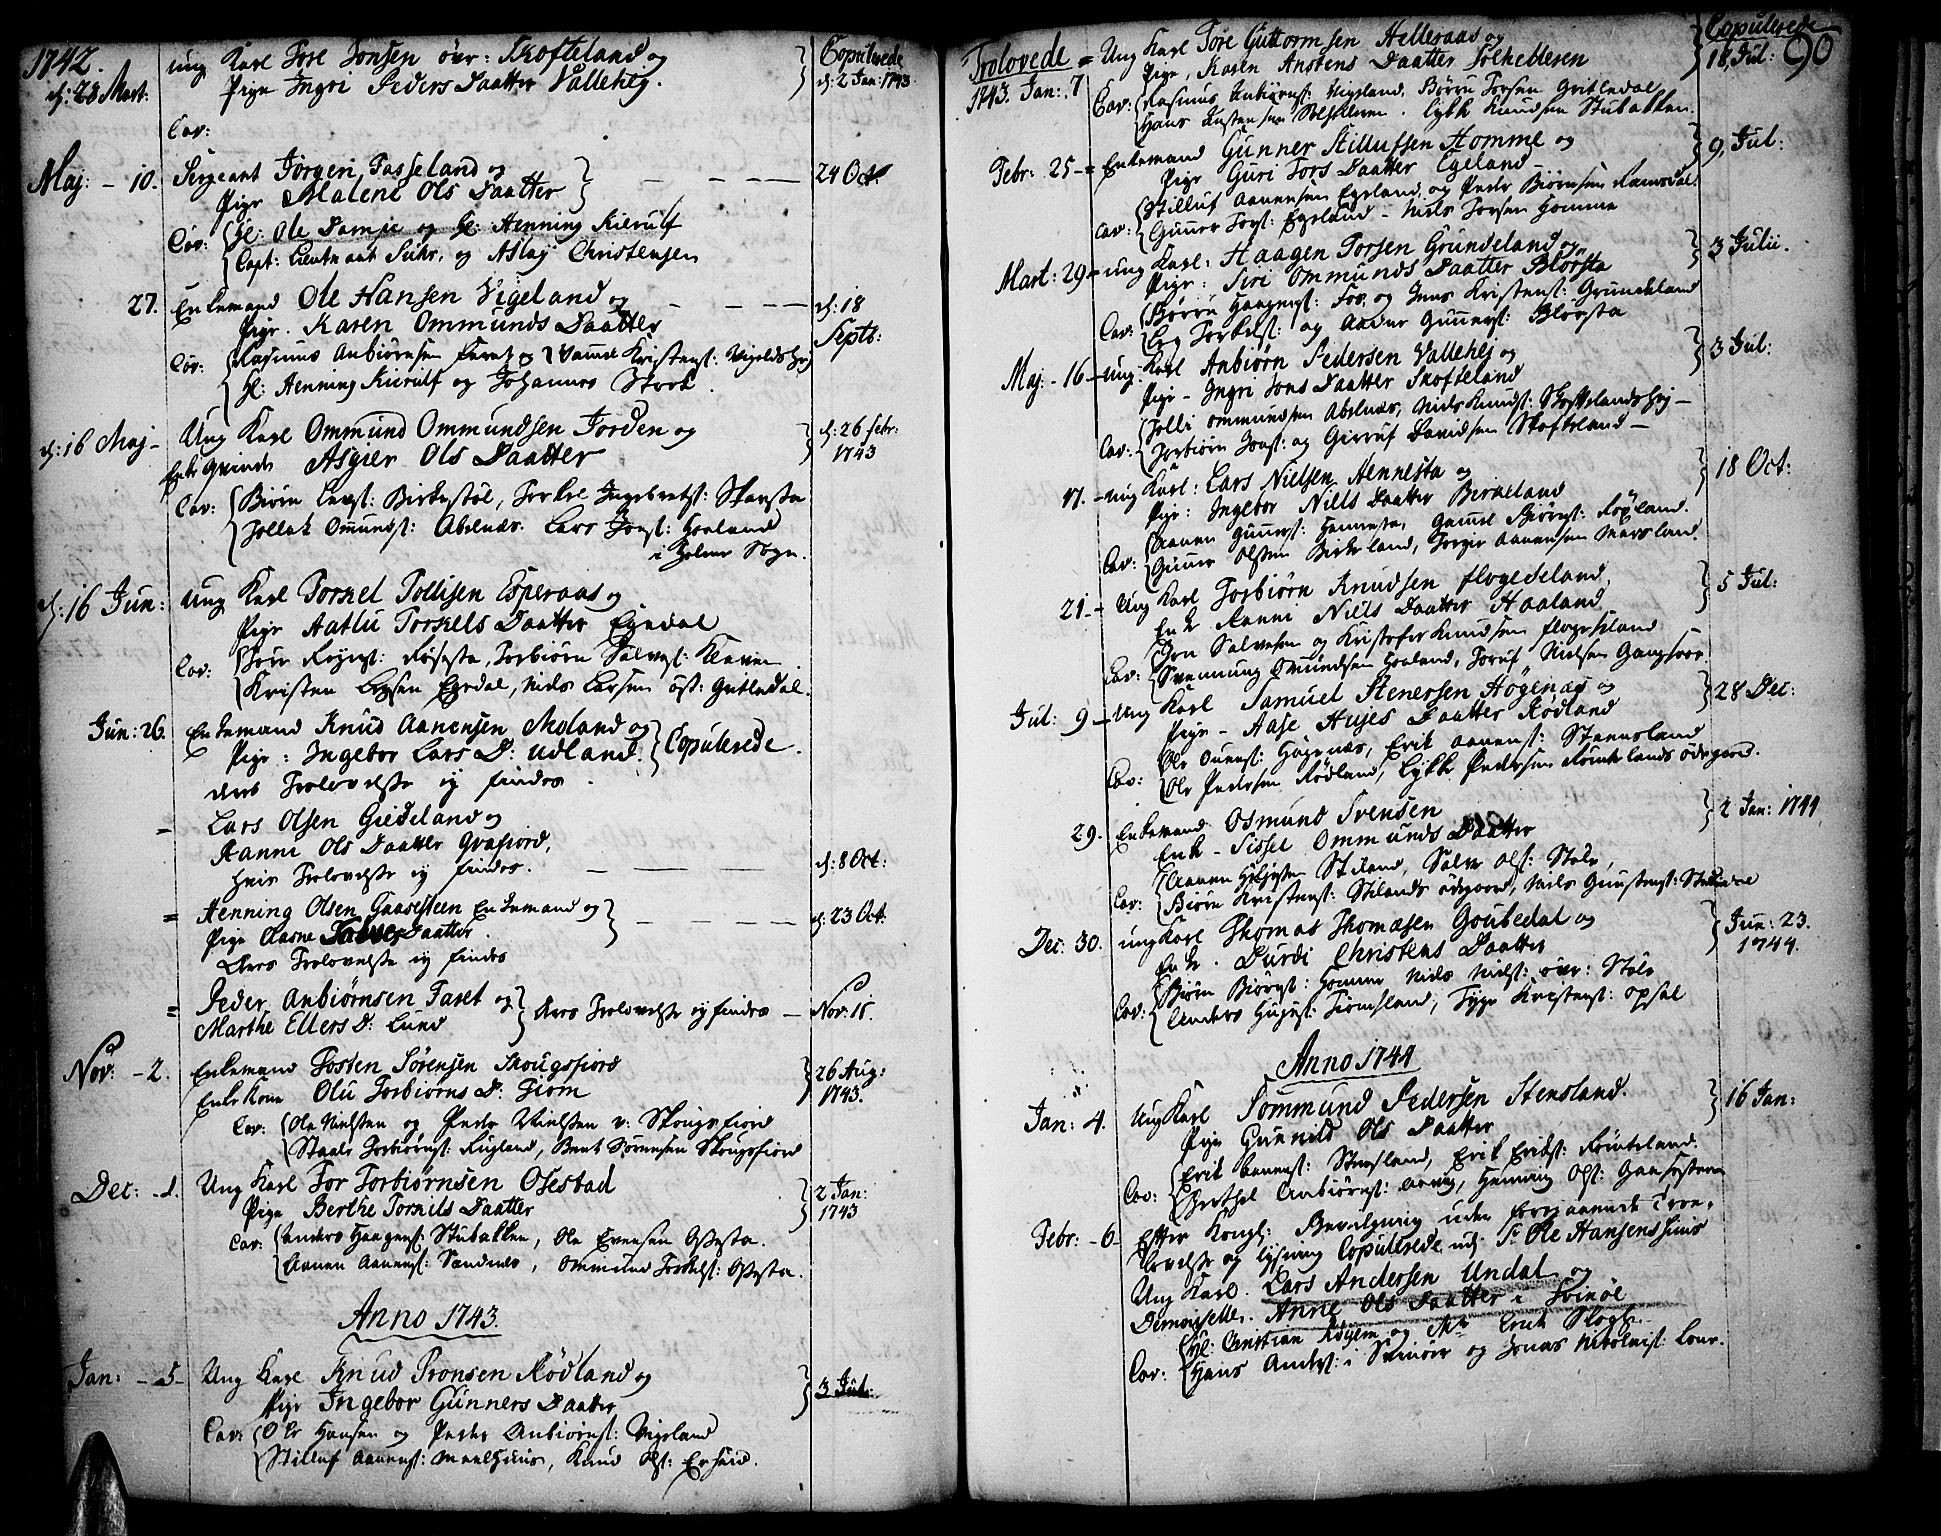 1742.
d: 28 Mart:
ung Karl Tore Jonsen öwr: Skofteland og
Pige Ingri Peders Daatter Vallehej.
Copulerede
d: 2 Jan: 1743
Cav:
Maj: - 10.
Sergeant Jörgen Tasseland og
Pige Malene Ols Daatter
24 Oct:
Cav: Hl: Ole Damje og Hl: Henning Kierulf
Capt: Lieutnant Suhr, og Aslag Christensen
27.
Enkemand Ole Hansen Vigeland og
Pige. Karen Ommunds Daatter
d: 18
Septb:
Cav: Rasmus Anbiörnsen Faret og Kristenss: Vigelds
Hl: Henning Kierulf og Johannes Stork.
d: 16 Maj -
Ung Karl Ommund Ommundsen Jorden og
Enke Qvinde Asgier Ols Daatter
d: 26 febr:
1743
Cav: Biörn Larss: Birkestöl, Torkel Ingebretss: Skovsta
Jollak Omunds: Abelnæs. Lars Jonss: Haaland
i Holme Sogn.
d: 16 Jun:
ung Karl Torkel Tollisen Esperaas og
Pige Aatlu Torkels Daatter Egedal
Cav: Tore Röjerss: Röesta, Torbiörn Salvess: Kleven
Kristen Larsen Egedal, Niels Larsen öst: Gritledal.
Jun: 26.
Enkemand Knud Aanensen Moland og
Pige: Ingebor Lars D: Udland.
Copulerede.
ders Trolovelse ej findes.
= Lars Olsen Giedeland og
Ranni Ols Daatter Qvafiord,
hvis Trolovelse ej findes.
d: 8 Oct:
= Henning Olsen Gaasefleen Enkemand og
Pige Aasne Daatter.
d: 23 Oct.
ders Trolovelse ej findes
= Peder Anbiörnsen Faret og
Marthe Ellers D: Lund
ders Trolovelse ej findes
Nov: 15.
Nov: - 2.
Enkemand Tosten Sörensen Skougsfiord
Enke Kone Olu Torbiörns D: Fiom
26 Aug:
1743.
Cav: Ole Nielssen og Peder Nielssen v: Skougsfiord
Staale Torbiörnss: Lugland, Bent Sörensen Skougsfiord
Dec: - 1.
Ung Karl Tor Torbiörnsen Osestad
Pige Berthe Torkils Daatter
2 Jan:
1743
Cav: Anders Haagenss: Stubakken, Ole Evensen Ossesta.
Aanen Aanenss: Sandnes, Ommund Torkelss: Ossesta.
Anno 1743.
Jan: - 5 -
Ung Karl Knud Tronsen Rödland og
Pige Ingebor Gunners Daatter
3 Jul:
Cav: Ole Hansen og Peder Anbiörnss: Vigeland
Stilluf Aanenss: Melhuus, Knud Olss: Ersheid.
Copulerede
90
Trolovede =
1743. Jan: 7
Ung Karl Tore Guttormsen Helleraas og
Pige, Karen Anstens Daatter Solhellesen
18, Jul:
Cav: Rasmus Anbiörnss: Vigeland, Börre Torsen Gritledal
Hans Austensen Solhellesen. Lykk Knudsen Stubakken.
Febr: 25 - =
Enkemand Gunner Stillufsen Homme og
Pige Guri Tors Daatter Egeland
9, Jul:
Cav: Stilluf Aanensen Egeland og Peder Biörnsen Ramsdal.
Gunner Torss: Egeland - Niels Torsen Homme
Mart: 29 =
ung Karl: Haagen Torsen Grundeland og
Pige: Siri Ommunds Daatter Blörsta
3 Julii.
Cav: Börre Haagenss: Foss og Jens Kristenss: Grundeland
Torkelss: og Aadne Gunnerss: Blörsta
Maj: - 16 -
ung: Karl Anbiörn Pedersen Vallehej og
Pige - Ingri Jons Daatter Skofteland
3 Jul:
Cav: Jolli Ommundsen Abelnæs, Niels Knudss: Skoftelandshej -
Torbiörn Jonss: og Gieruf Davidsen Skofteland -
17. -
ung Karl: Lars Nielsen Hennesta og
Pige: Ingebor Niels Daatter Berkeland
18 Oct:
Cav: Aanen Gunnerss: Hennesta, Gamel Biörnss: Röyland.
Gunner Olssen Birkeland, Torgier Aanensen Marsland.
21 -
Ung Karl Torbiörn Knudsen flogedeland,
Enke Ranni Niels Daatter Haaland
5 Jul:
Cav: Jon Salvesen og Kristofer Knudsen flogedeland
Svennung Omundsen Haaland, Toruf Nielsen Gangsaae
Jul: 9 -
Ung Karl Samuel Stenersen Högenæs og
Pige - Aase Aujes Daatter Rödland
28 Dec:
Cav: Ole Ounss: Högenæs, Erik Aanenss: Stensland
Ole Pedersen Rödland, Lykke Pedersen Röntelands ödegaard.
29.
Enkemand Osmund Svensen
Enke - Sissel Ommunds Daatter
2 Jan: 1744
Cav: Aanen Stiland, Salve Olss: Stöle,
Biörn Kristenss: Stilands ödegaard, Niels Gunstenss:
Dec: 30.
ung Karl Thomas Thomæsen Goubedal og
Enke. Durdi Christens Daatter
Jun: 23.
1744.
Cav: Biörn Biörnss: Homme Niels Nielss: öwr: Stöle
Anders Hujess: Tiomsland, Tyge Kristenss: Opsal
Anno 1744
Jan: 4.
Ung Karl Tommund Pedersen Stensland.
Pige Gunnild Ols Daatter
16 Jan:
Cav: Erik Aanenss: Stensland, Erik Erikss: Rönteland.
Berthel Anbiörnss: Henning Olss: Gaaseflene
Febr: - 6 -
Efter Kongl: Bevilgning uden foregaaende Troe-
lovelse og lysning Copulerede udj Sr Ole Hansens Huus
Ung Karl. Lars Andersen Undal og
Demoiselle. Anne Ols Daatter i Svinöe
Cav: Hl: Christian og Mr Erik Ploug
Hans Anders: i Svinöer og Jonas Nicolaiss: Lone.